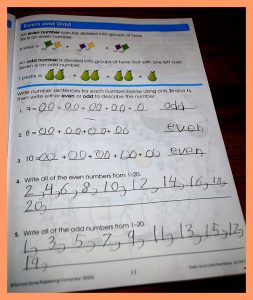 Even and Odd
An even number can be divided into groups of twos.
Six is an even number.
6 kites =
An odd number is divided into groups of twos, but with one left over.
Seven is an odd number.
7 pears =
Write number sentences for each number below using only 2s and 1s
then write either even or odd to describe the number.
1. 9 = 00 + 00 + 00 + 00 + 0 odd
2. 8 = 00 + 00 + 00 + 00 even
3. 10 = 00 + 00 + 00 + 00 + 00 even
4. Write all of the even numbers from 1-20.
2, 4, 6, 8, 10, 12, 14, 16, 18,
20,
5. Write all of the odd numbers from 1-20.
1, 3, 5, 7, 9, 11, 13, 15, 17,
19,
© School Zone Publishing Company
11
Even and Odd Numbers